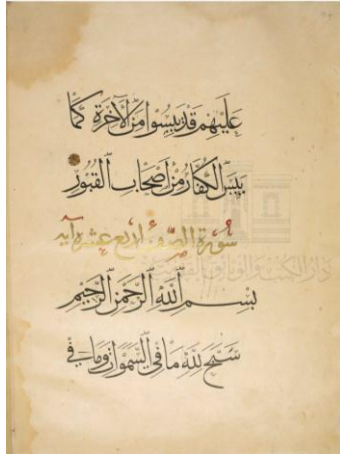 عَلَيْهِمْ قَدْ يَئِسُوا مِنَ الْآخِرَةِ كَمَا
يَئِسَ الْكُفَّارُ مِنْ أَصْحَابِ الْقُبُورِ
سورة الصف أربع عشرة آية
بِسْمِ اللَّهِ الرَّحْمَنِ الرَّحِيمِ
سَبَّحَ لِلَّهِ مَا فِي السَّمَوَاتِ وَمَا فِي
دار الكتب والوثائق القومية